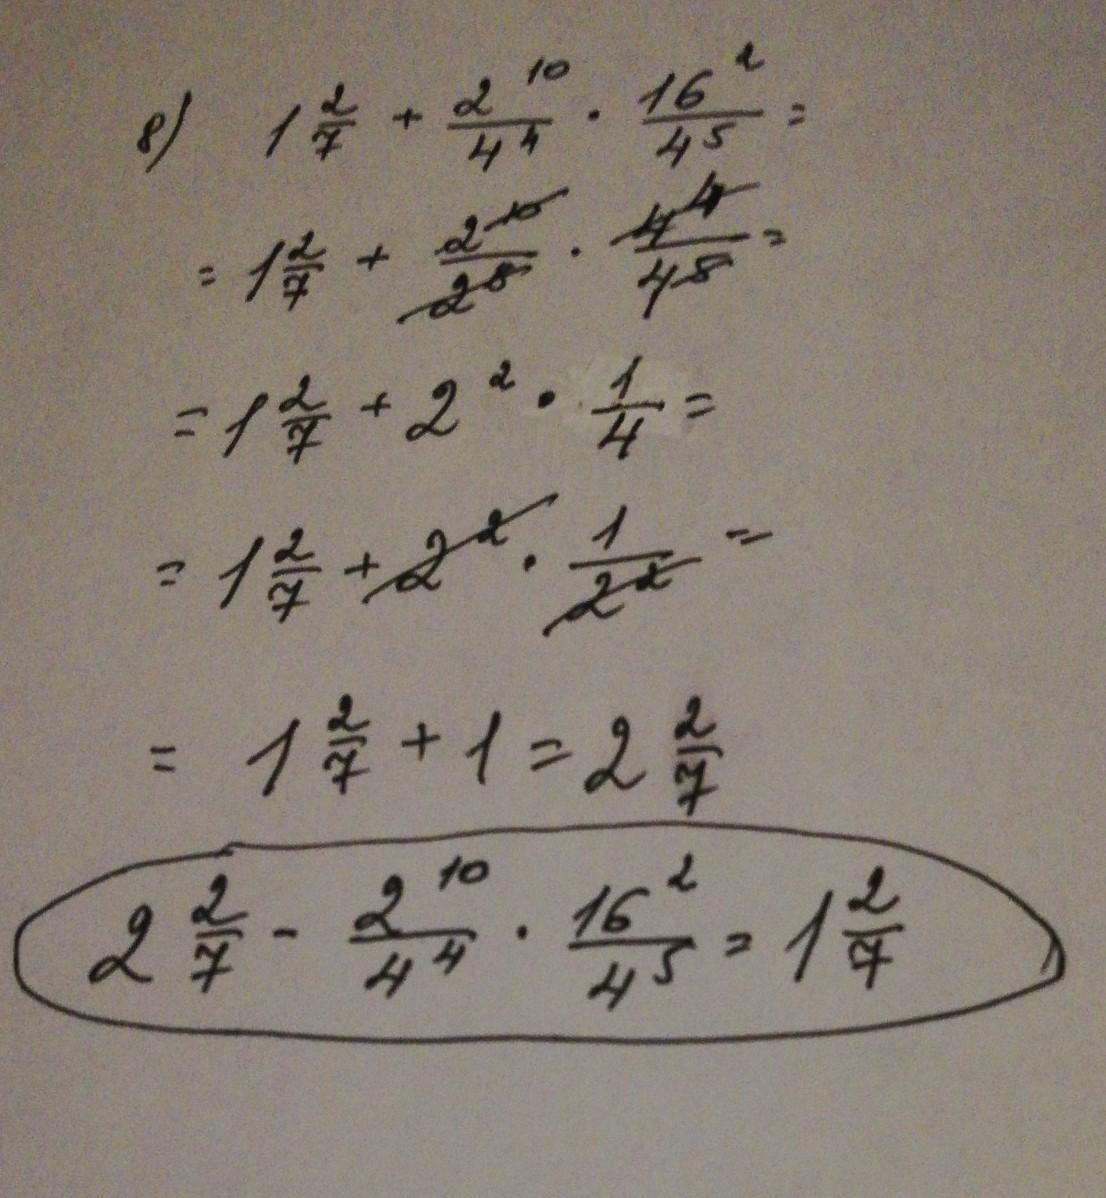 8) 1 2/7 + 2^10/4^4 · 16^2/4^5 =
= 1 2/7 + 2^10/2^8 · 4^4/4^8 =
= 1 2/7 + 2^2 · 1/4 =
= 1 2/7 + 2^2 · 1/2^2 =
= 1 2/7 + 1 = 2 2/7
2 2/7 - 2^10/4^4 · 16^2/4^5 = 1 2/7